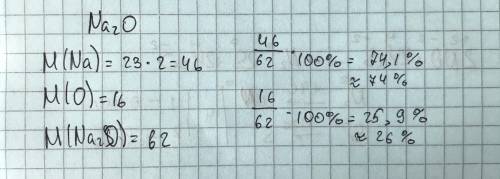 Na₂O
M(Na) = 23 · 2 = 46
M(O) = 16
M(Na₂O) = 62
46/62 · 100% = 74,1%
≈ 74%
16/62 · 100% = 25,9%
≈ 26%